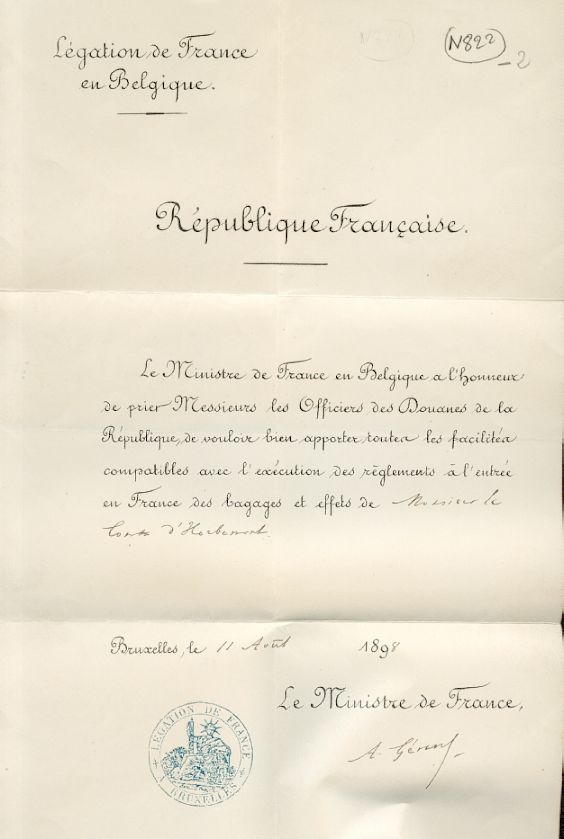 Légation de France
en Belgique.
N822
N822
-2
République Française.
Le Ministre de France en Belgique a l'honneur
de prier Messieurs les Officiers des Douanes de la
République, de vouloir bien apporter toutes les facilités
compatibles avec l'exécution des règlements à l'entrée
en France des bagages et effets de Monsieur le
Comte d'Herbemont.
Bruxelles, le 11 Août 1898
Le Ministre de France,
A. Gérard
LÉGATION DE FRANCE
A BRUXELLES